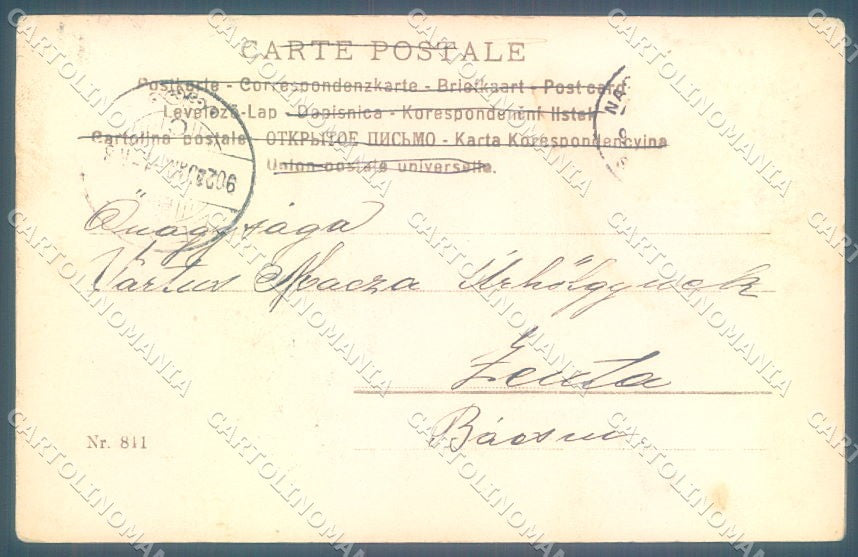 CARTE POSTALE
Postkarte - Correspondenzkarte - Briefkaart - Post card
Levelező-Lap - Dopisnica - Korespondenční lístek
Cartolina postale - ОТКРЫТОЕ ПИСЬМО - Karta Korespondencyjna
Union postale universelle.
902
NA
Őnagysága
Macza Úrhölgynek
Zenta
Bácsm
Nr. 841
CARTOLINOMANIA